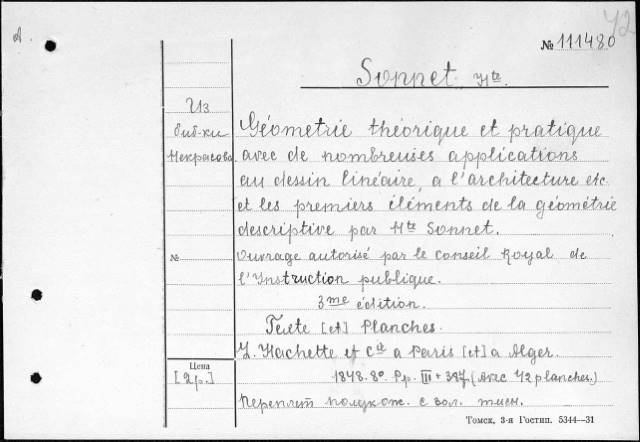 42
A.
№ 111480
Sonnet, Hte.
Из
биб-ки
Некрасова
Géometrie théorique et pratique
avec de nombreuses applications
au dessin linéaire, a l'architecture etc.
et les premiers éléments de la géométrie
descriptive par Hte Sonnet.
№
Ouvrage autorisé par le conseil Royal de
l'Instruction publique.
3me édition.
Texte [et] Planches.
L. Hachette et Cie a Paris [et] a Alger.
Цена
[2р.]
1848. 8º. Pp. III + (Avec 42 planches.)
Переплет полукож. с зол. тисн.
Томск, 3-я Гостип. 5344—31